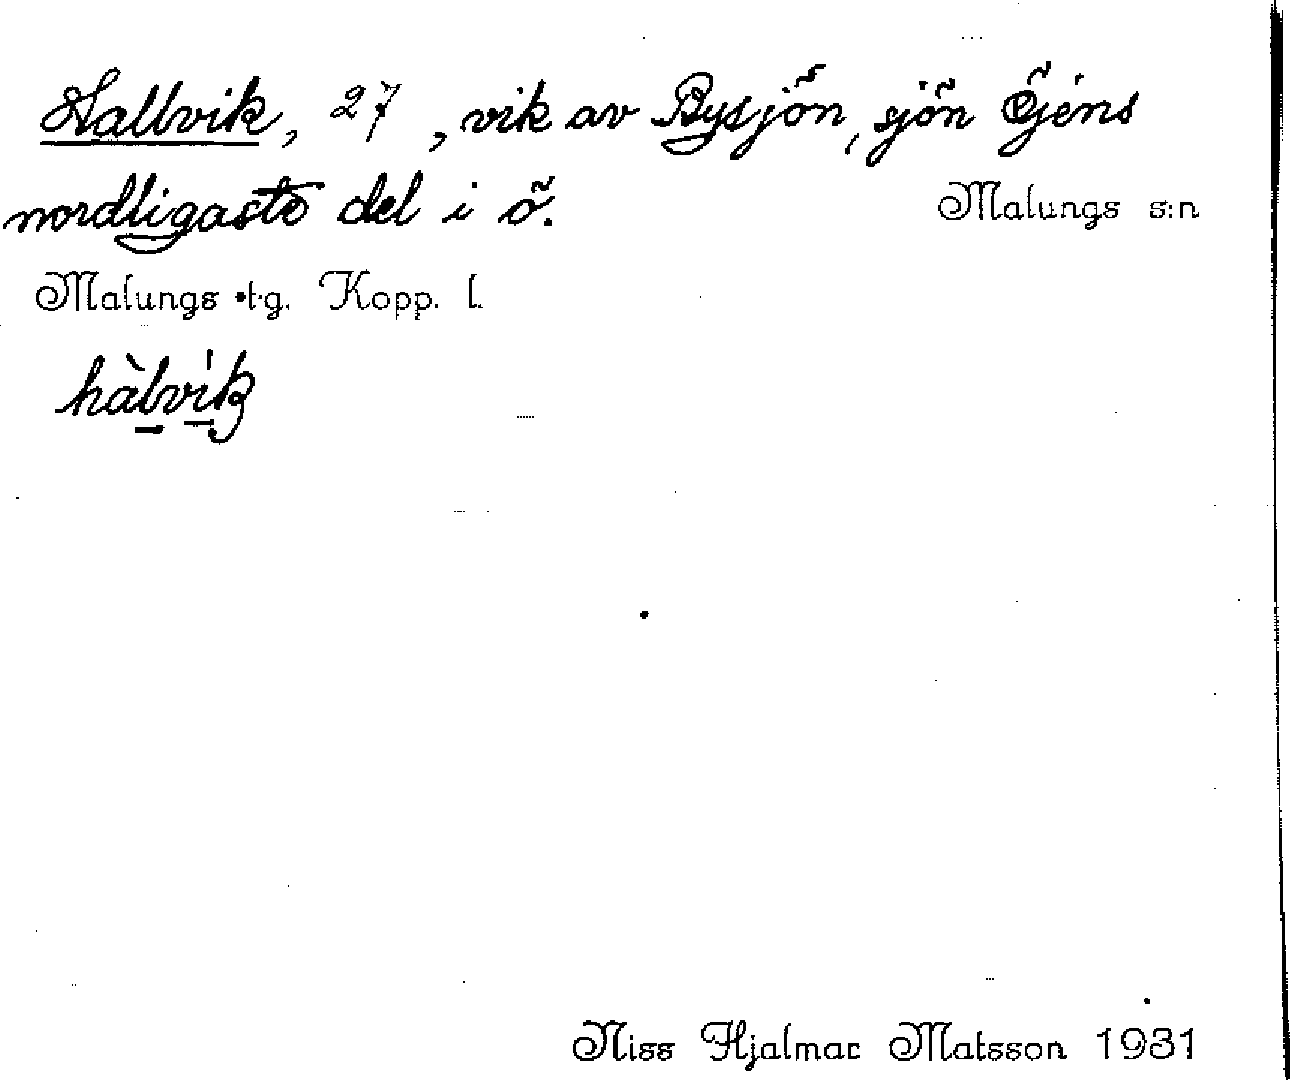 Hallvik, 27, vik av Bysjön, sjön Öjens
nordligaste del i ö.
Malungs s:n
Malungs t.g. Kopp. l.
hàlvik
Niss Hjalmar Matsson 1931